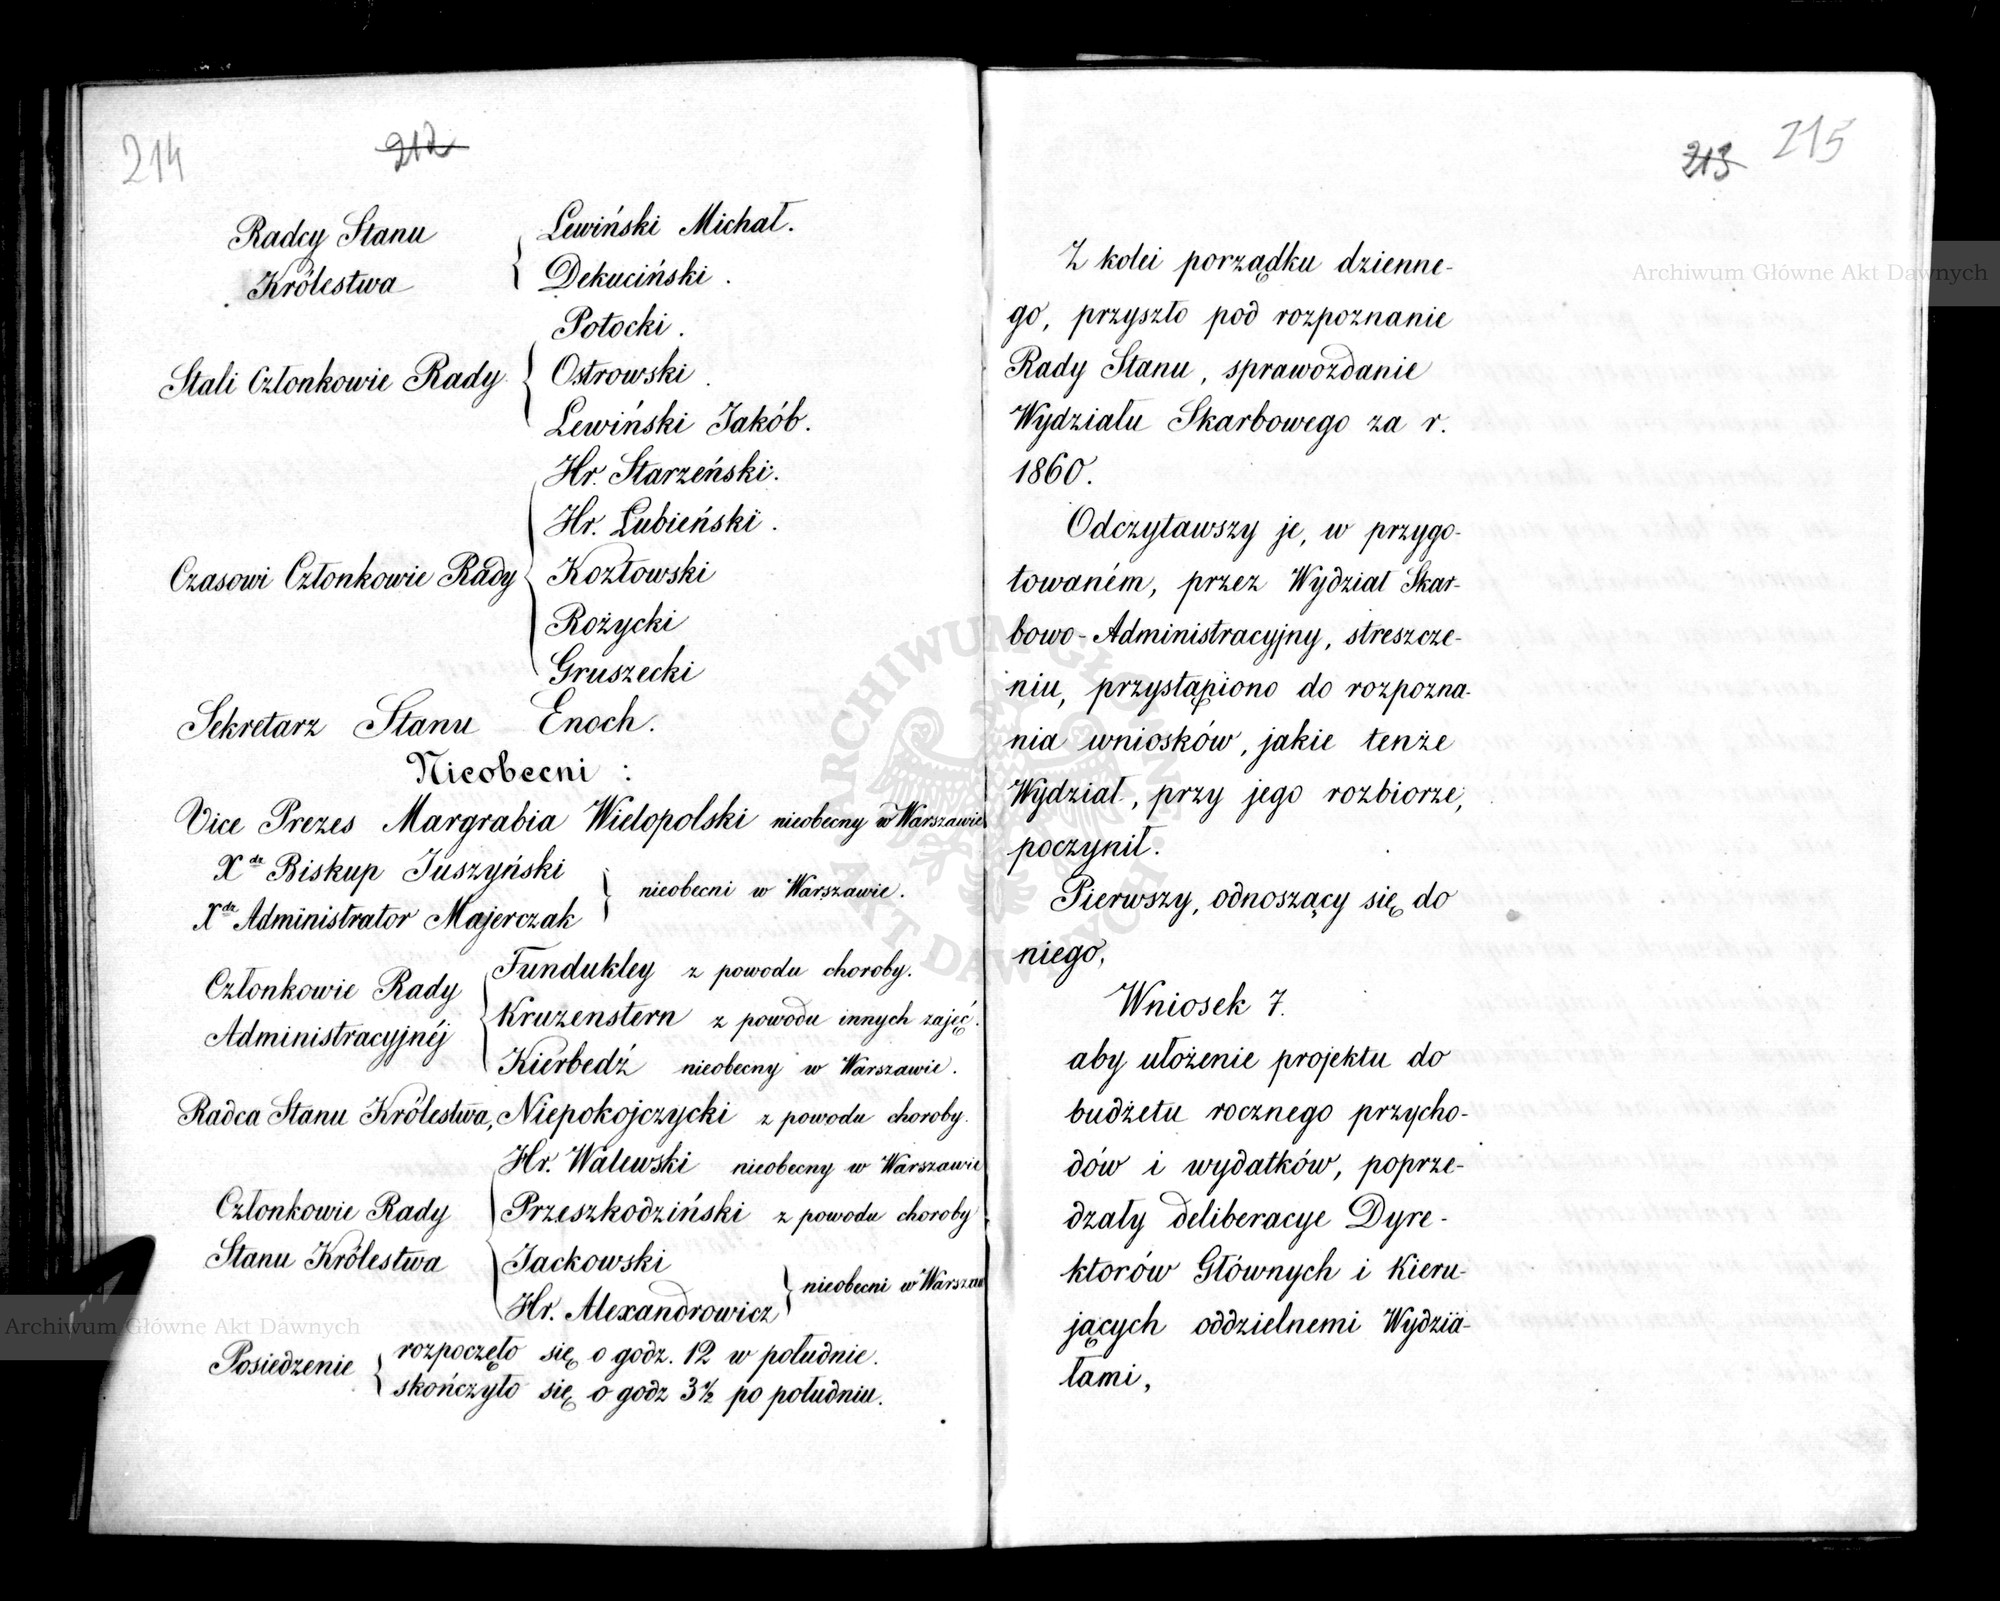 214
212
Radcy Stanu
Królestwa
Lewiński Michał.
Dekuciński.
Stali Członkowie Rady
Potocki.
Ostrowski.
Lewiński Jakób.
Czasowi Członkowie Rady
Hr. Starzeński.
Hr. Łubieński.
Kozłowski
Rożycki
Gruszecki
Sekretarz Stanu Enoch.
Nieobecni :
Vice Prezes Margrabia Wielopolski nieobecny w Warszawie
Xdz Biskup Juszyński
Xdz Administrator Majerczak
nieobecni w Warszawie.
Członkowie Rady
Administracyjnéj
Fundukley z powodu choroby.
Kruzenstern z powodu innych zajęć.
Kierbedź nieobecny w Warszawie.
Radca Stanu Królestwa, Niepokojczycki z powodu choroby.
Członkowie Rady
Stanu Królestwa
Hr. Walewski nieobecny w Warszawie
Przeszkodziński z powodu choroby
Jackowski
Hr. Alexandrowicz
nieobecni w Warszaw
Posiedzenie
rozpoczęło się o godz. 12 w południe.
skończyło się o godz 3½ po południu.
213
215
Z kolei porządku dzienne-
go, przyszło pod rozpoznanie
Rady Stanu, sprawozdanie
Wydziału Skarbowego za r.
1860.
Odczytawszy je, w przygo-
towaném, przez Wydział Skar-
bowo-Administracyjny, streszcze-
niu, przystąpiono do rozpozna-
nia wniosków, jakie tenże
Wydział, przy jego rozbiorze,
poczynił.
Pierwszy, odnoszący się do
niego,
Wniosek 7.
aby ułożenie projektu do
budżetu rocznego przycho-
dów i wydatków, poprze-
dzały deliberacye Dyre-
ktorów Głównych i Kieru-
jących oddzielnemi Wydzia-
łami,
Archiwum Główne Akt Dawnych
Archiwum Główne Akt Dawnych
ARCHIWUM GŁÓWNE AKT DAWNYCH